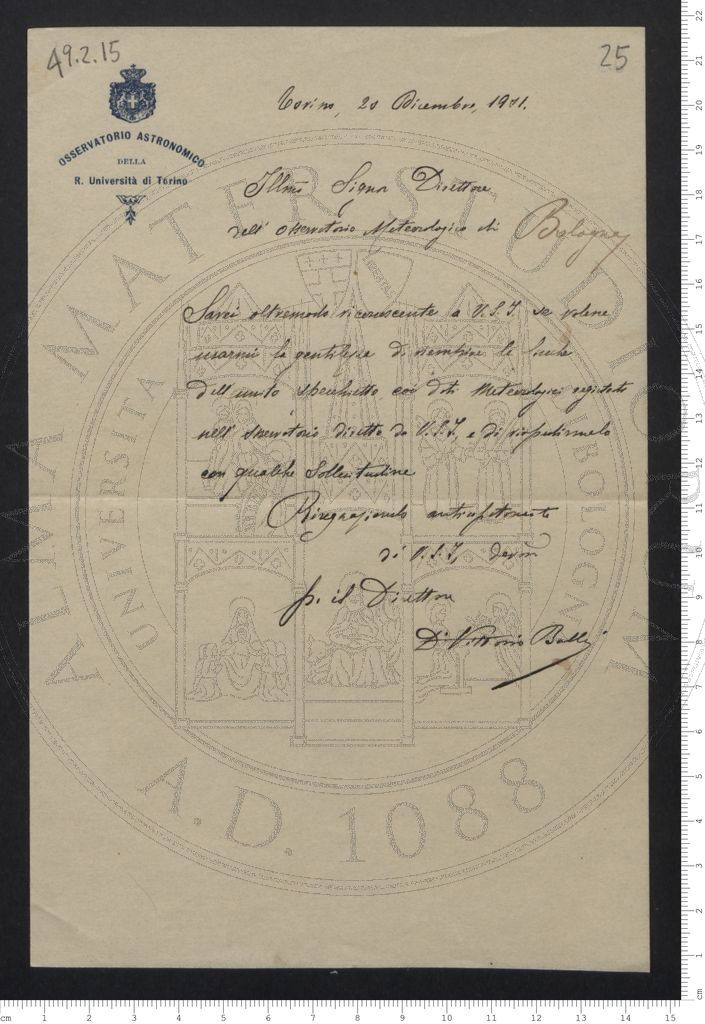 49.2.15
25
OSSERVATORIO ASTRONOMICO
DELLA
R. Università di Torino
Torino, 20 Dicembre, 1911.
Illmo Signor Direttore
dell' Osservatorio Meteorologico di Bologna
Sarei oltremodo riconoscente a V.S.I. se volesse
usarmi la gentilezza di riempire le finche
dell'unito specchietto, coi dati Meteorologici registrati
nell' Osservatorio diretto da V.S.I. e di rispedirmelo
con qualche sollecitudine
Ringraziando anticipatamente
di V.S.I. devmo
p. il Direttore
Dr Vittorio Balbi
ALMA MATER STUDIORUM
UNIVERSITA DI BOLOGNA
A.D. 1088